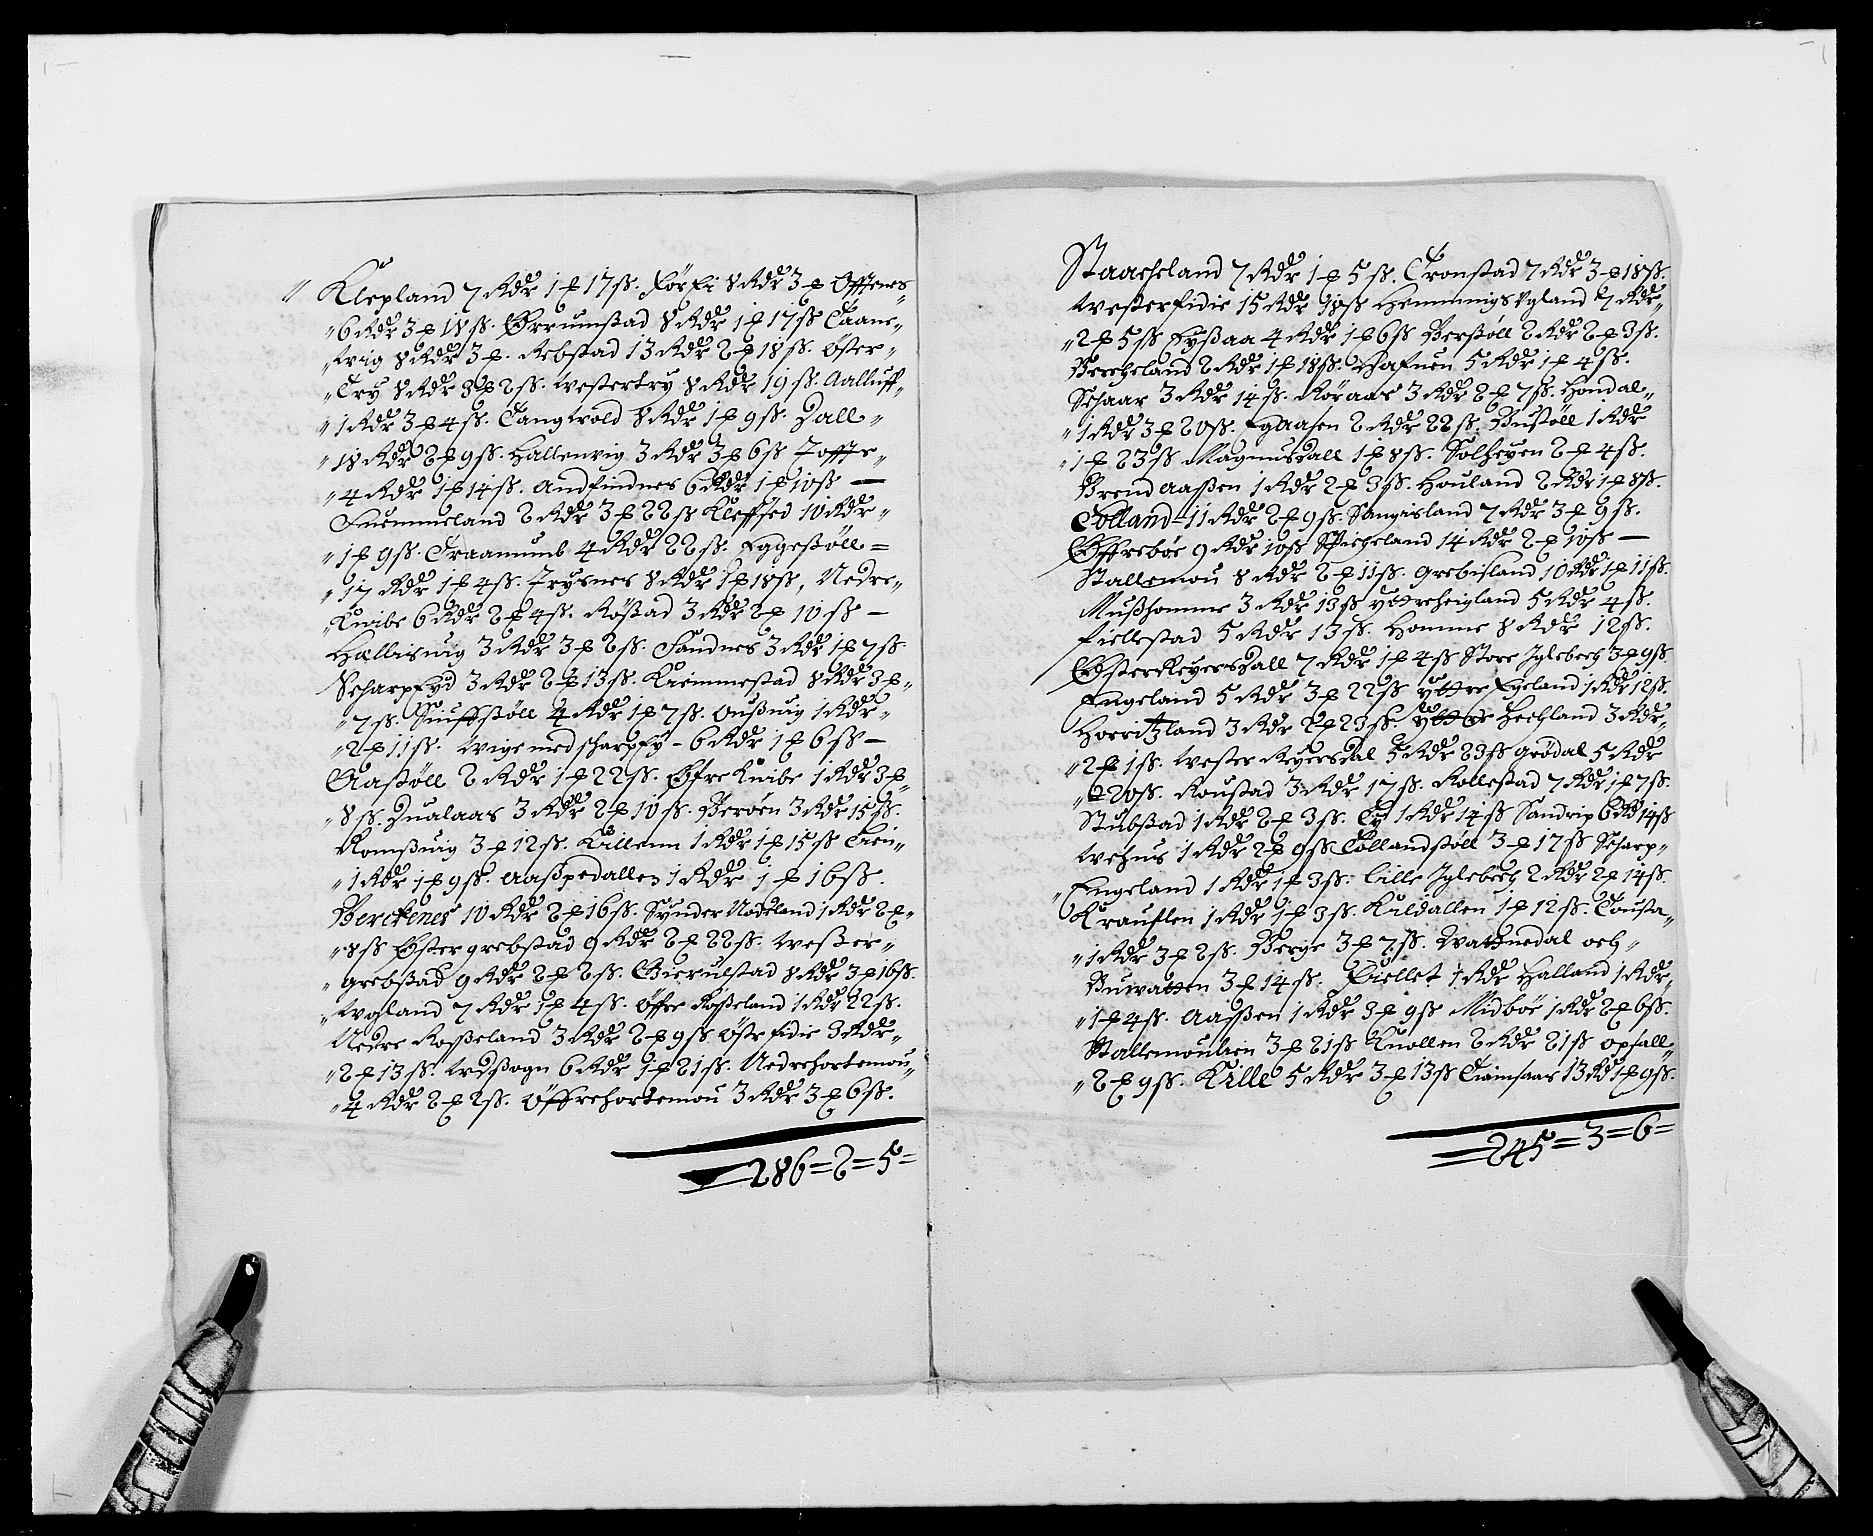 Klepland 7 Rdr 1 p 17 ss. Førsi 8 Rdr 3 p Ottenes
6 Rdr 3 p 18 ss. Ørrumstad 8 Rdr 1 p 17 ss Taane-
wig 8 Rdr 3 p. Rebstad 13 Rdr 2 p 18 ss. Øster-
Try 8 Rdr 3 p 2 ss. westertry 8 Rdr 19 ss. Aalluff-
1 Rdr 3 p 4 ss. Langwold 8 Rdr 1 p 9 ss. Dall-
18 Rdr 2 p 9 ss. Hallenvig 3 Rdr 3 p 6 ss Tofte-
4 Rdr 1 p 14 ss. Andfindnes 6 Rdr 1 p 10 ss —
Fuemmeland 2 Rdr 3 p 22 ss Kleffsed 10 Rdr-
1 p 9 ss. Fraamunds 4 Rdr 22 ss. Eggestøll =
17 Rdr 1 p 4 ss. Trysnes 8 Rdr 1 p 18 ss, Nedre-
Knibe 6 Rdr 2 p 4 ss. Røstad 3 Rdr 2 p 10 ss —
Hallisvig 3 Rdr 3 p 2 ss. Sandnes 3 Rdr 1 p 7 ss.
Scharpeyd 3 Rdr 2 p 13 ss. Kremmestad 8 Rdr 3 p-
7 ss. Stuffstøll 4 Rdr 1 p 7 ss. Oussuig 1 Rdr-
2 p 11 ss. wige med scharpey - 6 Rdr 1 p 6 ss —
Aastøll 2 Rdr 1 p 22 ss. Øfre Knibe 1 Rdr 3 p-
8 ss. Dualaas 3 Rdr 2 p 10 ss. Berøen 3 Rdr 15 ss.
Romsuig 3 p 12 ss. Killenn 1 Rdr 1 p 15 ss Lien-
1 Rdr 1 p 9 ss. Aasspedallen 1 Rdr 1 p 16 ss.
Berckenes 10 Rdr 2 p 16 ss. Synder Nodeland 1 Rdr 2 p-
8 ss Øster grebstad 9 Rdr 2 p 22 ss. wester-
grebstad 9 Rdr 2 p 2 ss. Bierulstad 8 Rdr 3 p 16 ss.
wgland 7 Rdr 1 p 4 ss. Øffre Rosseland 1 Rdr 22 ss.
Nedre Rosseland 3 Rdr 2 p 9 ss Øste Eidie 3 Rdr-
2 p 13 ss. wdssogn 6 Rdr 1 p 21 ss. Nedrehortemou-
4 Rdr 2 p 2 ss. Øffrehortemou 3 Rdr 3 p 6 ss.
286 = 2 = 5 =
Staacheland 7 Rdr 1 p 5 ss. Tronstad 7 Rdr 3 p 18 ss.
westereidie 15 Rdr 18 ss Hemmingsygland 7 Rdr-
2 p 5 ss Hyssaa 4 Rdr 1 p 6 ss Berstøll 2 Rdr 2 p 3 ss.
Bercheland 2 Rdr 1 p 18 ss. Hafuen 5 Rdr 1 p 4 ss.
Schaar 3 Rdr 14 ss. Røraas 3 Rdr 2 p 7 ss. Hondal-
1 Rdr 3 p 20 ss. Egaasen 2 Rdr 22 ss. Bustøll 1 Rdr
1 p 23 ss Magnusdall 1 p 8 ss. Solheyen 2 p 4 ss.
Brendaassen 1 Rdr 2 p 3 ss. Houland 2 Rdr 1 p 8 ss.
Tolland - 11 Rdr 2 p 9 ss. Sangisland 7 Rdr 3 p 9 ss.
Øffrebøe 9 Rdr 10 ss Sticheland 14 Rdr 2 p 10 ss —
Stallemou 8 Rdr 2 p 11 ss. Grebisland 10 Rdr 1 p 11 ss.
Musshomme 3 Rdr 13 ss Yttreheigland 5 Rdr 4 ss.
Fiellestad 5 Rdr 13 ss. Homme 8 Rdr 12 ss.
ØsterReyersdall 7 Rdr 1 p 4 ss Store Iglebech 3 p 9 ss.
Engeland 5 Rdr 3 p 22 ss Yttre Egeland 1 Rdr 12 ss.
Horritzland 3 Rdr 2 p 23 ss Yttre Hechland 3 Rdr-
2 p 1 ss. wester Reyersdal 5 Rdr 23 ss Grødal 5 Rdr
20 ss. Roustad 3 Rdr 17 ss. Rollestad 7 Rdr 1 p 7 ss.
Stubstad 1 Rdr 2 p 3 ss. Ey 1 Rdr 14 ss Sandrip 6 Rd 14 ss
wehus 1 Rdr 2 p 9 ss Tollandstøll 3 p 17 ss Scharp-
Engeland 1 Rdr 1 p 3 ss. Lille Iglebech 2 Rdr 2 p 14 ss.
Krauflen 1 Rdr 1 p 3 ss. Kuldallen 1 p 12 ss. Tousta-
1 Rdr 3 p 2 ss. Berge 3 p 7 ss. Wattnedal och-
Buwatten 3 p 14 ss. Fiellet 1 Rdr Halland 1 Rdr
1 p 4 ss. Aassen 1 Rdr 3 p 9 ss Midbøe 1 Rdr 2 p 6 ss.
Stallemoulien 3 p 21 ss Knollen 2 Rdr 21 ss opsall-
2 p 9 ss. Kille 5 Rdr 3 p 13 ss Tiomsaas 13 Rd 1 p 9 ss.
245 = 3 = 6 =